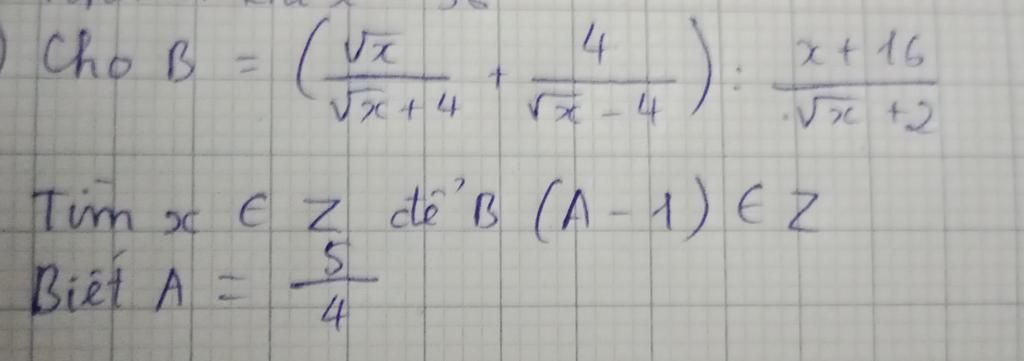 ) Cho B = (√x/(√x + 4) + 4/(√x - 4)) : (x + 16)/(√x + 2)
Tìm x ∈ Z để B (A - 1) ∈ Z
Biết A = 5/4